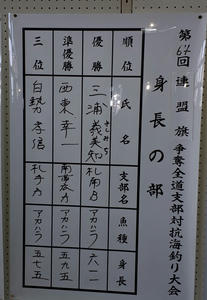 第64回 連盟旗 争奪全道支部対抗海釣り大会
身長の部
順位 氏名 支部名 魚種 身長
優勝 三浦義美知 よしみち 札南B アカハラ 六一一
準優勝 西東幸一 アカハラ 五九五
三位 白勢孝信 アカハラ 五七五